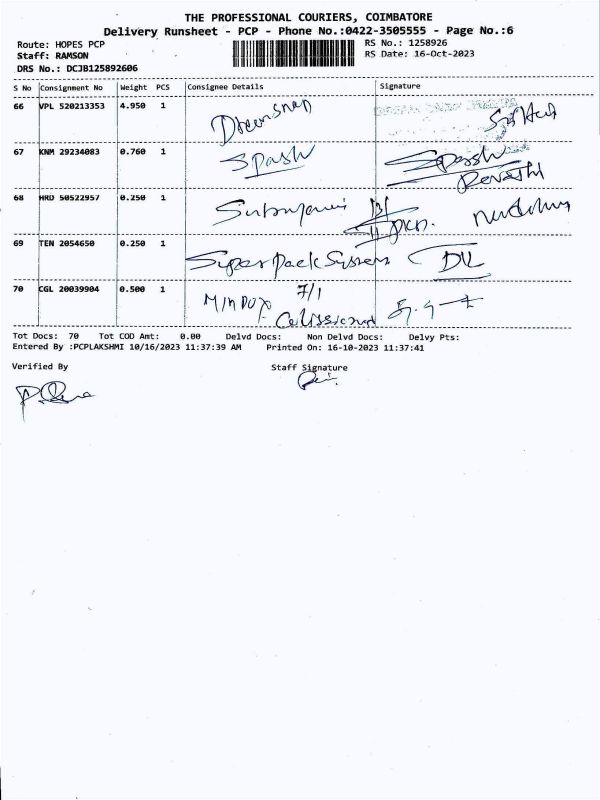 THE PROFESSIONAL COURIERS, COIMBATORE
Delivery Runsheet - PCP - Phone No.:0422-3505555 - Page No.:6
Route: HOPES PCP
RS No.: 1258926
Staff: RAMSON
RS Date: 16-Oct-2023
DRS No.: DCJB125892606
S No Consignment No Weight PCS Consignee Details Signature
66 VPL 520213353 4.950 1
67 KNM 29234083 0.760 1 Spash Spassh
Revathi
68 HRD 50522957 0.250 1
69 TEN 2054650 0.250 1 Super Pack System
70 CGL 20039904 0.500 1 Mindox 7/1
Tot Docs: 70 Tot COD Amt: 0.00 Delvd Docs: Non Delvd Docs: Delvy Pts:
Entered By :PCPLAKSHMI 10/16/2023 11:37:39 AM Printed On: 16-10-2023 11:37:41
Verified By Staff Signature